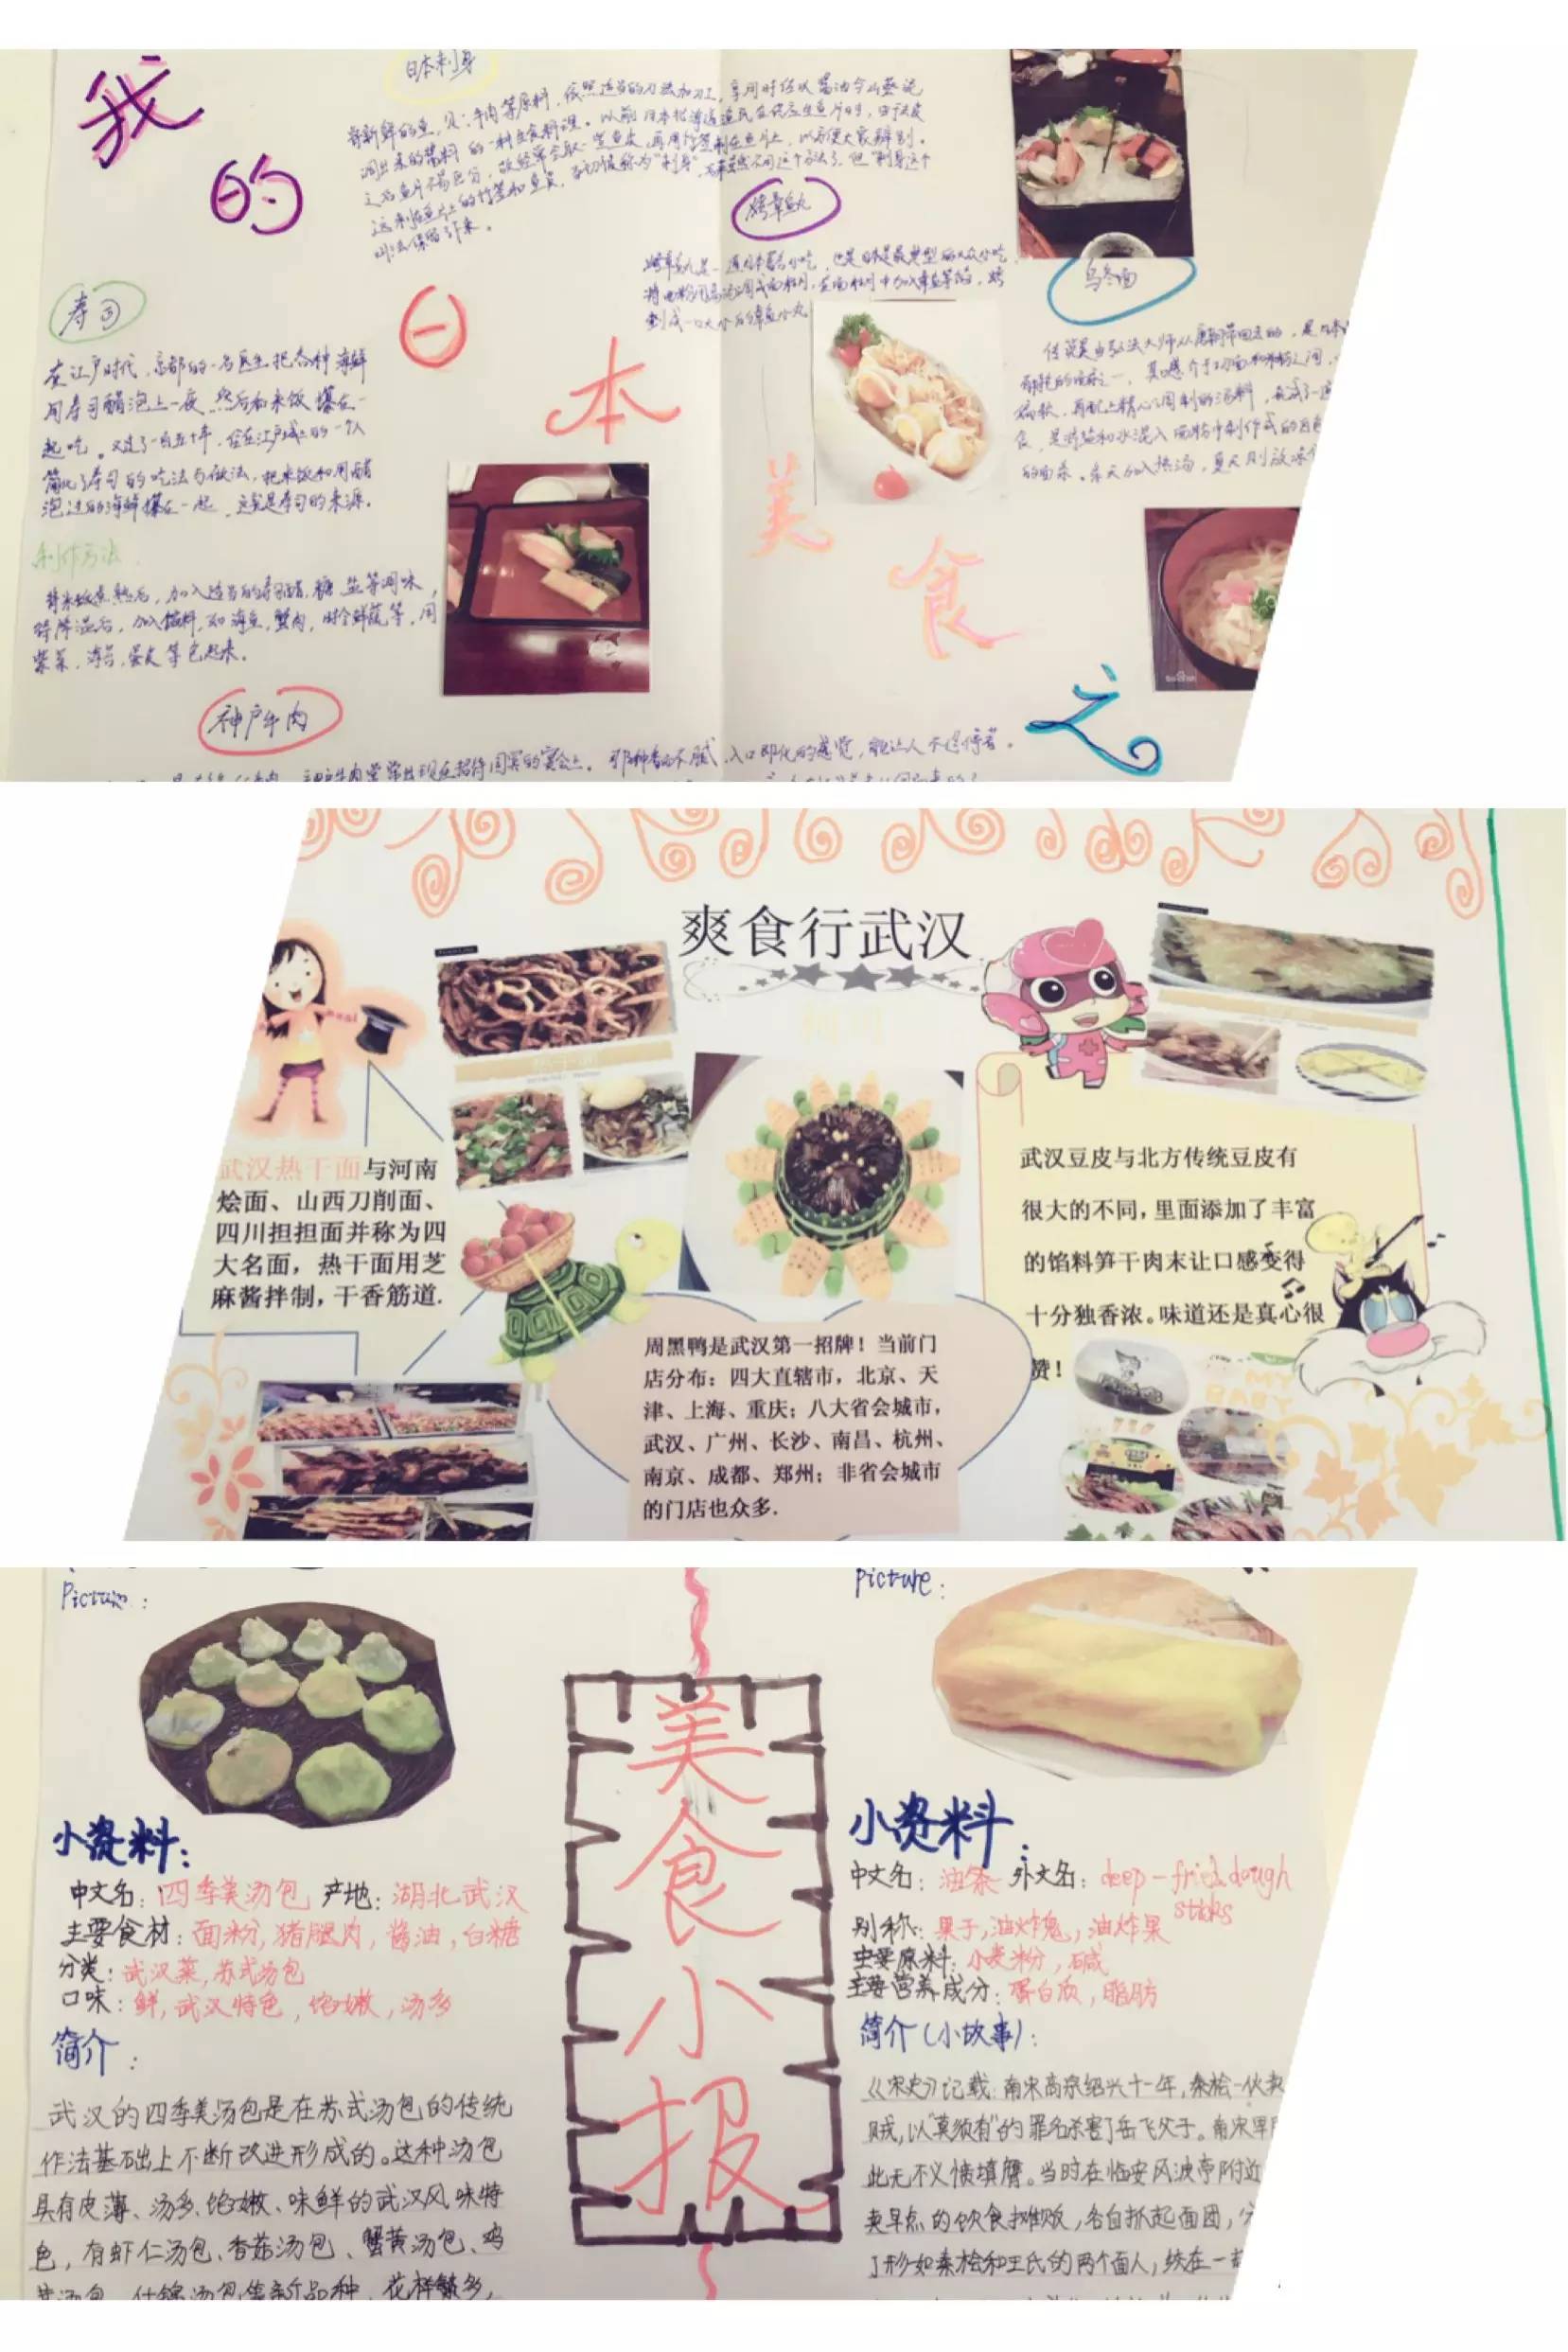 我的
日本美食
之
日本刺身
将新鲜的鱼,贝,牛肉等原料,依照适当的刀法加工,享用时佐以酱油与山葵泥
调出来的酱料的一种生食料理。以前日本北海道渔民在供应生鱼片时,由于去皮
之后鱼片不易区分,故经常会取一些鱼皮,再用竹签刺在鱼片上,以方便大家辨别。
这刺在鱼片上的竹签和鱼皮,当初被称为“刺身”,后来虽然不用这个方法了,但“刺身”这个
叫法保留下来。
烤章鱼丸
将面粉用高汤调成面糊,在面糊中加入章鱼等馅,烤
制成一口大小的章鱼小丸
寿司
在江户时代,京都的一名医生把各种海鲜
用寿司醋泡上一夜,然后和米饭攥在一
起吃。又过了一百五十年,住在江户城上的一个人
简化了寿司的吃法与做法,把米饭和用醋
泡过的海鲜攥在一起,这就是寿司的来源。
制作方法
将米饭煮熟后,加入适当的寿司醋,糖,盐等调味,
待降温后,加入馅料,如海鱼,蟹肉,时令鲜蔬等,用
紫菜,海苔,蛋皮等包起来。
乌冬面
传说是由弘法大师从唐朝带回去的,是日本
的面条。冬天加入热汤,夏天则放凉
神户牛肉
神户牛肉常常出现在招待国宾的宴会上。那种香而不腻,入口即化的感觉,能让人不得停箸。
爽食行武汉
武汉热干面与河南
烩面、山西刀削面、
四川担担面并称为四
大名面,热干面用芝
麻酱拌制,干香筋道.
周黑鸭是武汉第一招牌!当前门
店分布:四大直辖市,北京、天
津、上海、重庆;八大省会城市,
武汉、广州、长沙、南昌、杭州、
南京、成都、郑州;非省会城市
的门店也众多.
武汉豆皮与北方传统豆皮有
很大的不同,里面添加了丰富
的馅料笋干肉末让口感变得
十分独香浓。味道还是真心很
赞!
MY
BABY
Picture:
小资料:
中文名:四季美汤包 产地:湖北武汉
主要食材:面粉,猪腿肉,酱油,白糖
分类:武汉菜,苏式汤包
口味:鲜,武汉特色,馅嫩,汤多
简介:
武汉的四季美汤包是在苏式汤包的传统
作法基础上不断改进形成的。这种汤包
具有皮薄、汤多、馅嫩、味鲜的武汉风味特
色,有虾仁汤包、香菇汤包、蟹黄汤包、鸡
茸汤包、什锦汤包等新品种,花样繁多,
美食小报
picture:
小资料:
中文名:油条 外文名:deep-fried dough
sticks
别称:果子,油炸鬼,油炸果
主要原料:小麦粉,碱
主要营养成分:蛋白质,脂肪
简介(小故事):
《宋史》记载:南宋高宗绍兴十一年,秦桧一伙卖
贼,以“莫须有”的罪名杀害了岳飞父子。南宋军
此无不义愤填膺。当时在临安风波亭附近
卖早点的饮食摊贩,各自抓起面团,分
了形如秦桧和王氏的两个面人,绞在一起